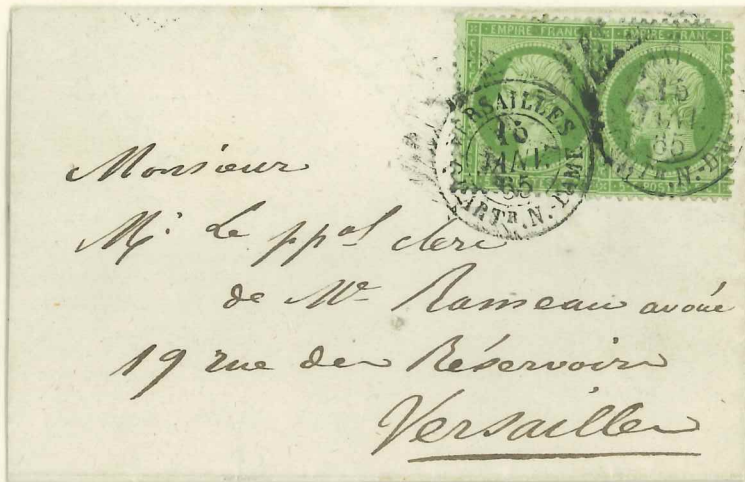 EMPIRE FRANC
EMPIRE FRANC
VERSAILLES
16
JANV.
65
QUARTR. N.-DAME
16
JANV.
65
Monsieur
Mr. Le ppal clerc
de Me Rameau avoué
19 rue des Réservoirs
Versailles